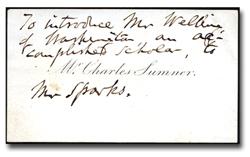 To introduce Mr Welling
of Washington an ac-
complished scholar, to
Mr. Charles Sumner.
Mr Sparks.